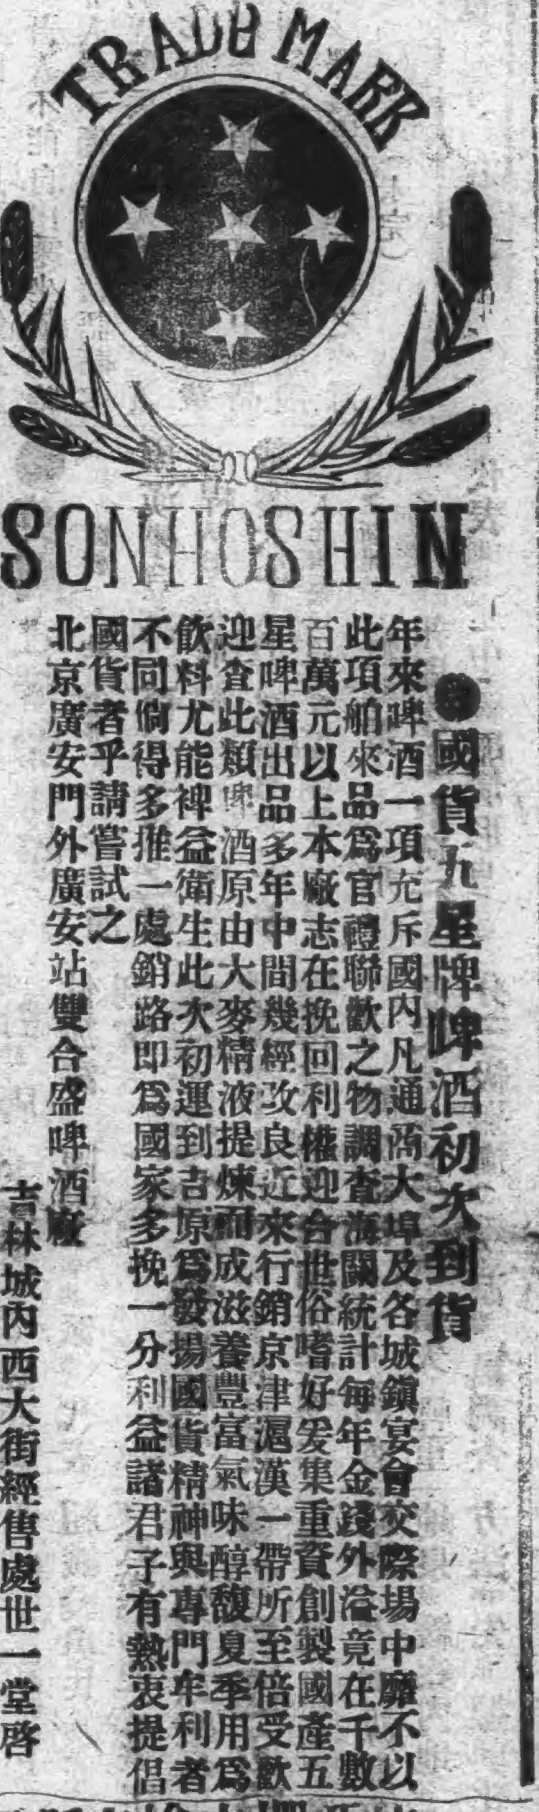 TRADE MARK
SONHOSHIN
國貨五星牌啤酒初次到貨
年來啤酒一項充斥國內凡通商大埠及各城鎭宴會交際場中靡不以
此項舶來品爲官禮聯歡之物調查海關統計每年金錢外溢竟在千數
百萬元以上本廠志在挽回利權迎合世俗嗜好爰集重資創製國產五
星啤酒出品多年中間幾經改良近來行銷京津滬漢一帶所至倍受歡
迎查此類啤酒原由大麥精液提煉而成滋養豐富氣味醇馥夏季用爲
飲料尤能裨益衛生此次初運到吉原爲發揚國貨精神與專門牟利者
不同倘得多推一處銷路即爲國家多挽一分利益諸君子有熱衷提倡
國貨者乎請嘗試之
北京廣安門外廣安站雙合盛啤酒廠
吉林城內西大街經售處世一堂啓